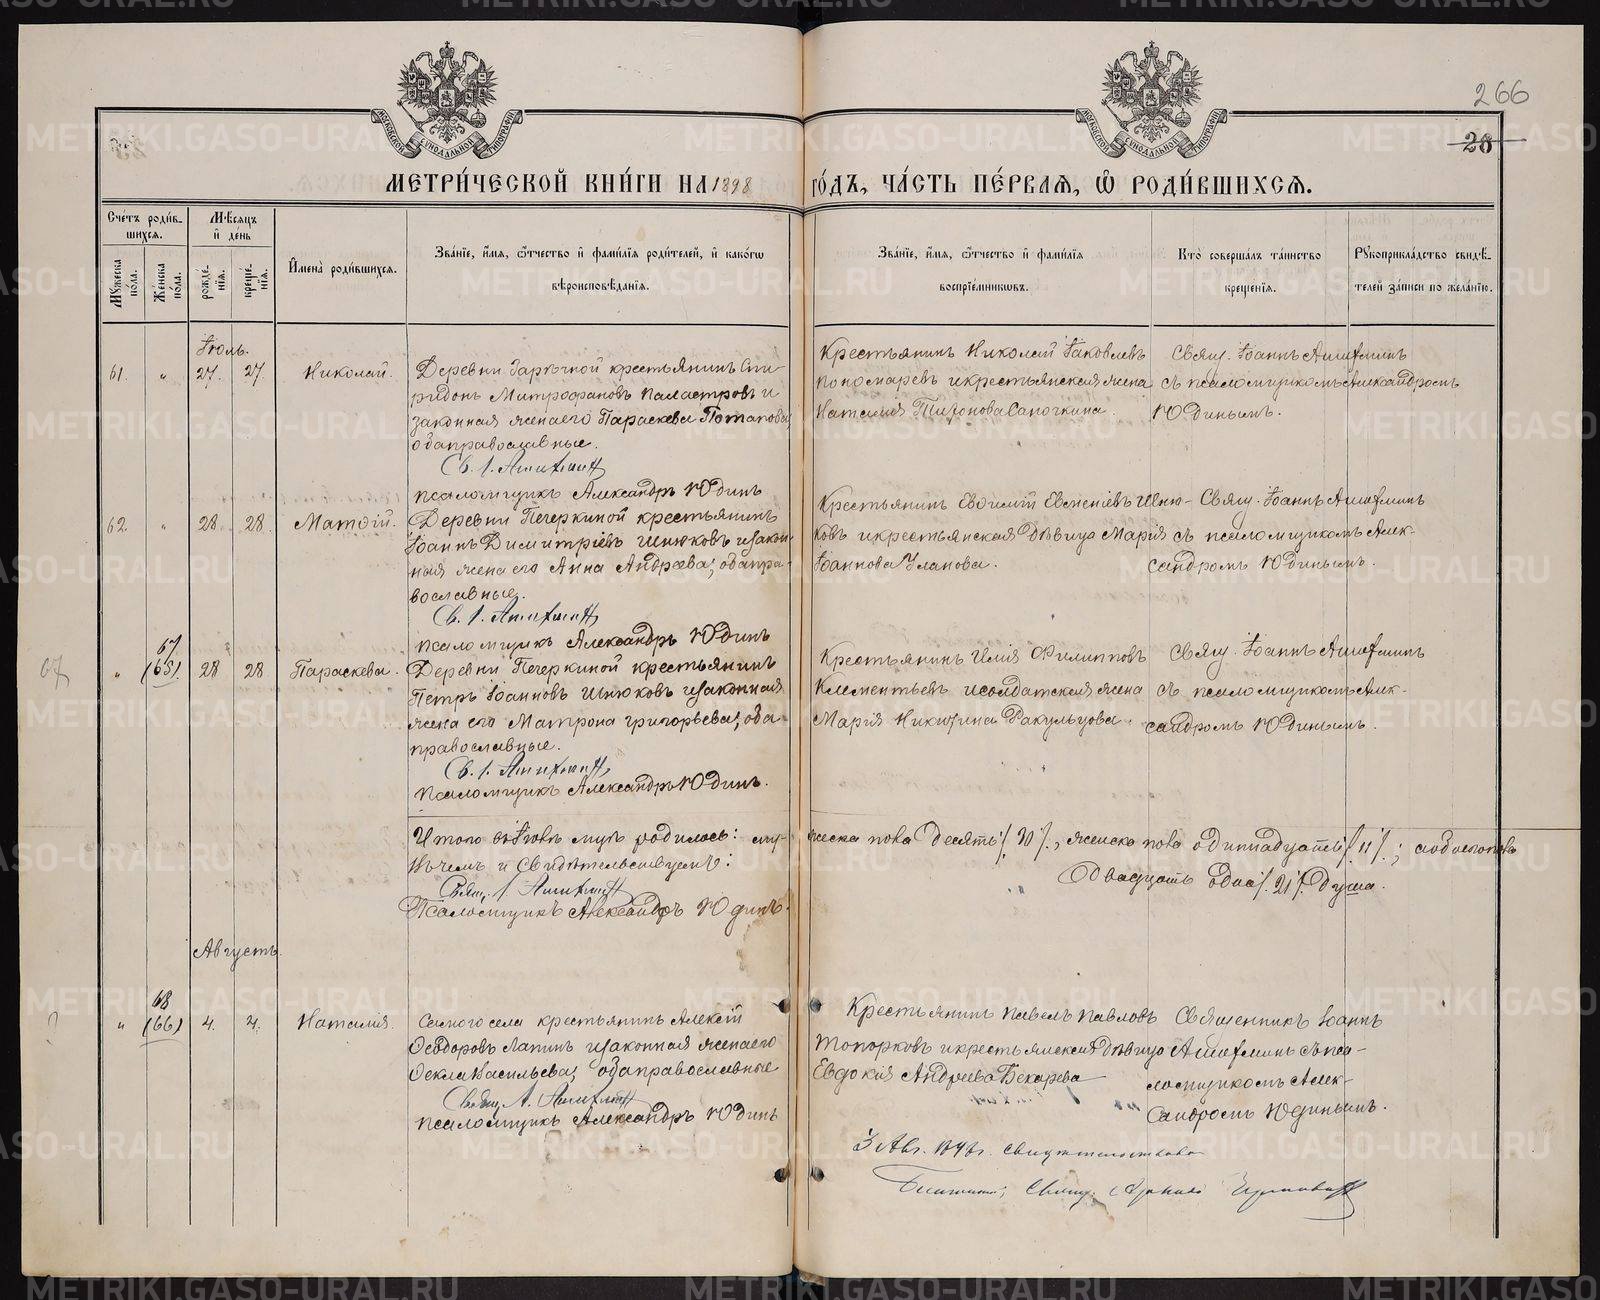 266
28
МОСКОВСКОЙ СѴНОДАЛЬНОЙ ТИПОГРАФІИ
МОСКОВСКОЙ СѴНОДАЛЬНОЙ ТИПОГРАФІИ
МЕТРИ́ЧЕСКОЙ КНИ́ГИ НА 1898 ГО́ДЪ, ЧА́СТЬ ПЕ́РВАЯ, Ѽ РОДИ́ВШИХСЯ.
Сче́тъ роди́в-
шихся.
Му́жеска по́ла.
Же́нска по́ла.
Мѣ́сяцъ
и̂ де́нь
рожде́нїя.
креще́нїя.
И̂мена̀ роди́вшихся.
Зва́нїе, и̂́мя, ѻ҆́тчество и̂ фами́лїя роди́телей, и̂ како́гѡ
вѣроисповѣ́данїя.
Зва́нїе, и̂́мя, ѻ҆́тчество и̂ фами́лїя
воспрїе́мниковъ.
Кто̀ соверша́лъ та́инство
креще́нїя.
Рꙋкоприкла́дство свидѣ́-
телей за́писи по жела́нїю.
Іюль.
61. " 27. 27. Николай.
Деревни Зарѣчной крестьянинъ Спи-
ридонъ Митрофановъ Паластровъ и
законная жена его Параскева Потапова,
оба православные.
Псаломщикъ Александръ Юдинъ
Крестьянинъ Николай Іаковлевъ
Пономаревъ и крестьянская жена
Наталия Тихонова Сапочкина.
Свящ. Іоаннъ
съ псаломщикомъ Александромъ
Юдинымъ.
62. " 28. 28. Матѳій.
Деревни Печеркиной крестьянинъ
Іоаннъ Димитріевъ Шнюковъ и закон-
ная жена его Анна Андреева; оба пра-
вославные.
Псаломщикъ Александръ Юдинъ
Крестьянинъ Евѳимій Евменіевъ Шню-
ковъ и крестьянская дѣвица Марія
Іоаннова Уланова.
Свящ. Іоаннъ
съ псаломщикомъ Алек-
сандромъ Юдинымъ.
67 " 67. (65) 28 28 Параскева.
Деревни Печеркиной крестьянинъ
Петръ Іоанновъ Шнюковъ и законная
жена его Матрона Григорьева; оба
православные.
Псаломщикъ Александръ Юдинъ.
Крестьянинъ Илія Филипповъ
Клементьевъ и солдатская жена
Марія Никитина Ракульцова.
Свящ. Іоаннъ
съ псаломщикомъ Алек-
сандромъ Юдинымъ.
Итого въ Іюлѣ родилось: му-
жеска пола десять /10/, женска пола одиннадцать /11/; а обоего пола
двадцать одна /21/ душа.
чемъ и свидѣтельствуемъ:
Псаломщикъ Александръ Юдинъ.
Августъ.
" 68 (66) 4. 4. Наталия.
Самого села крестьянинъ Алексій
Ѳеодоровъ Лапинъ и законная жена его
Ѳекла Васильева; оба православные
Псаломщикъ Александръ Юдинъ
Крестьянинъ Павелъ Павловъ
Топорковъ и крестьянская дѣвица
Евдокія Андреева Бекарева
Священникъ Іоаннъ
съ пса-
ломщикомъ Алек-
сандромъ Юдинымъ.
METRIKI.GASO-URAL.RU